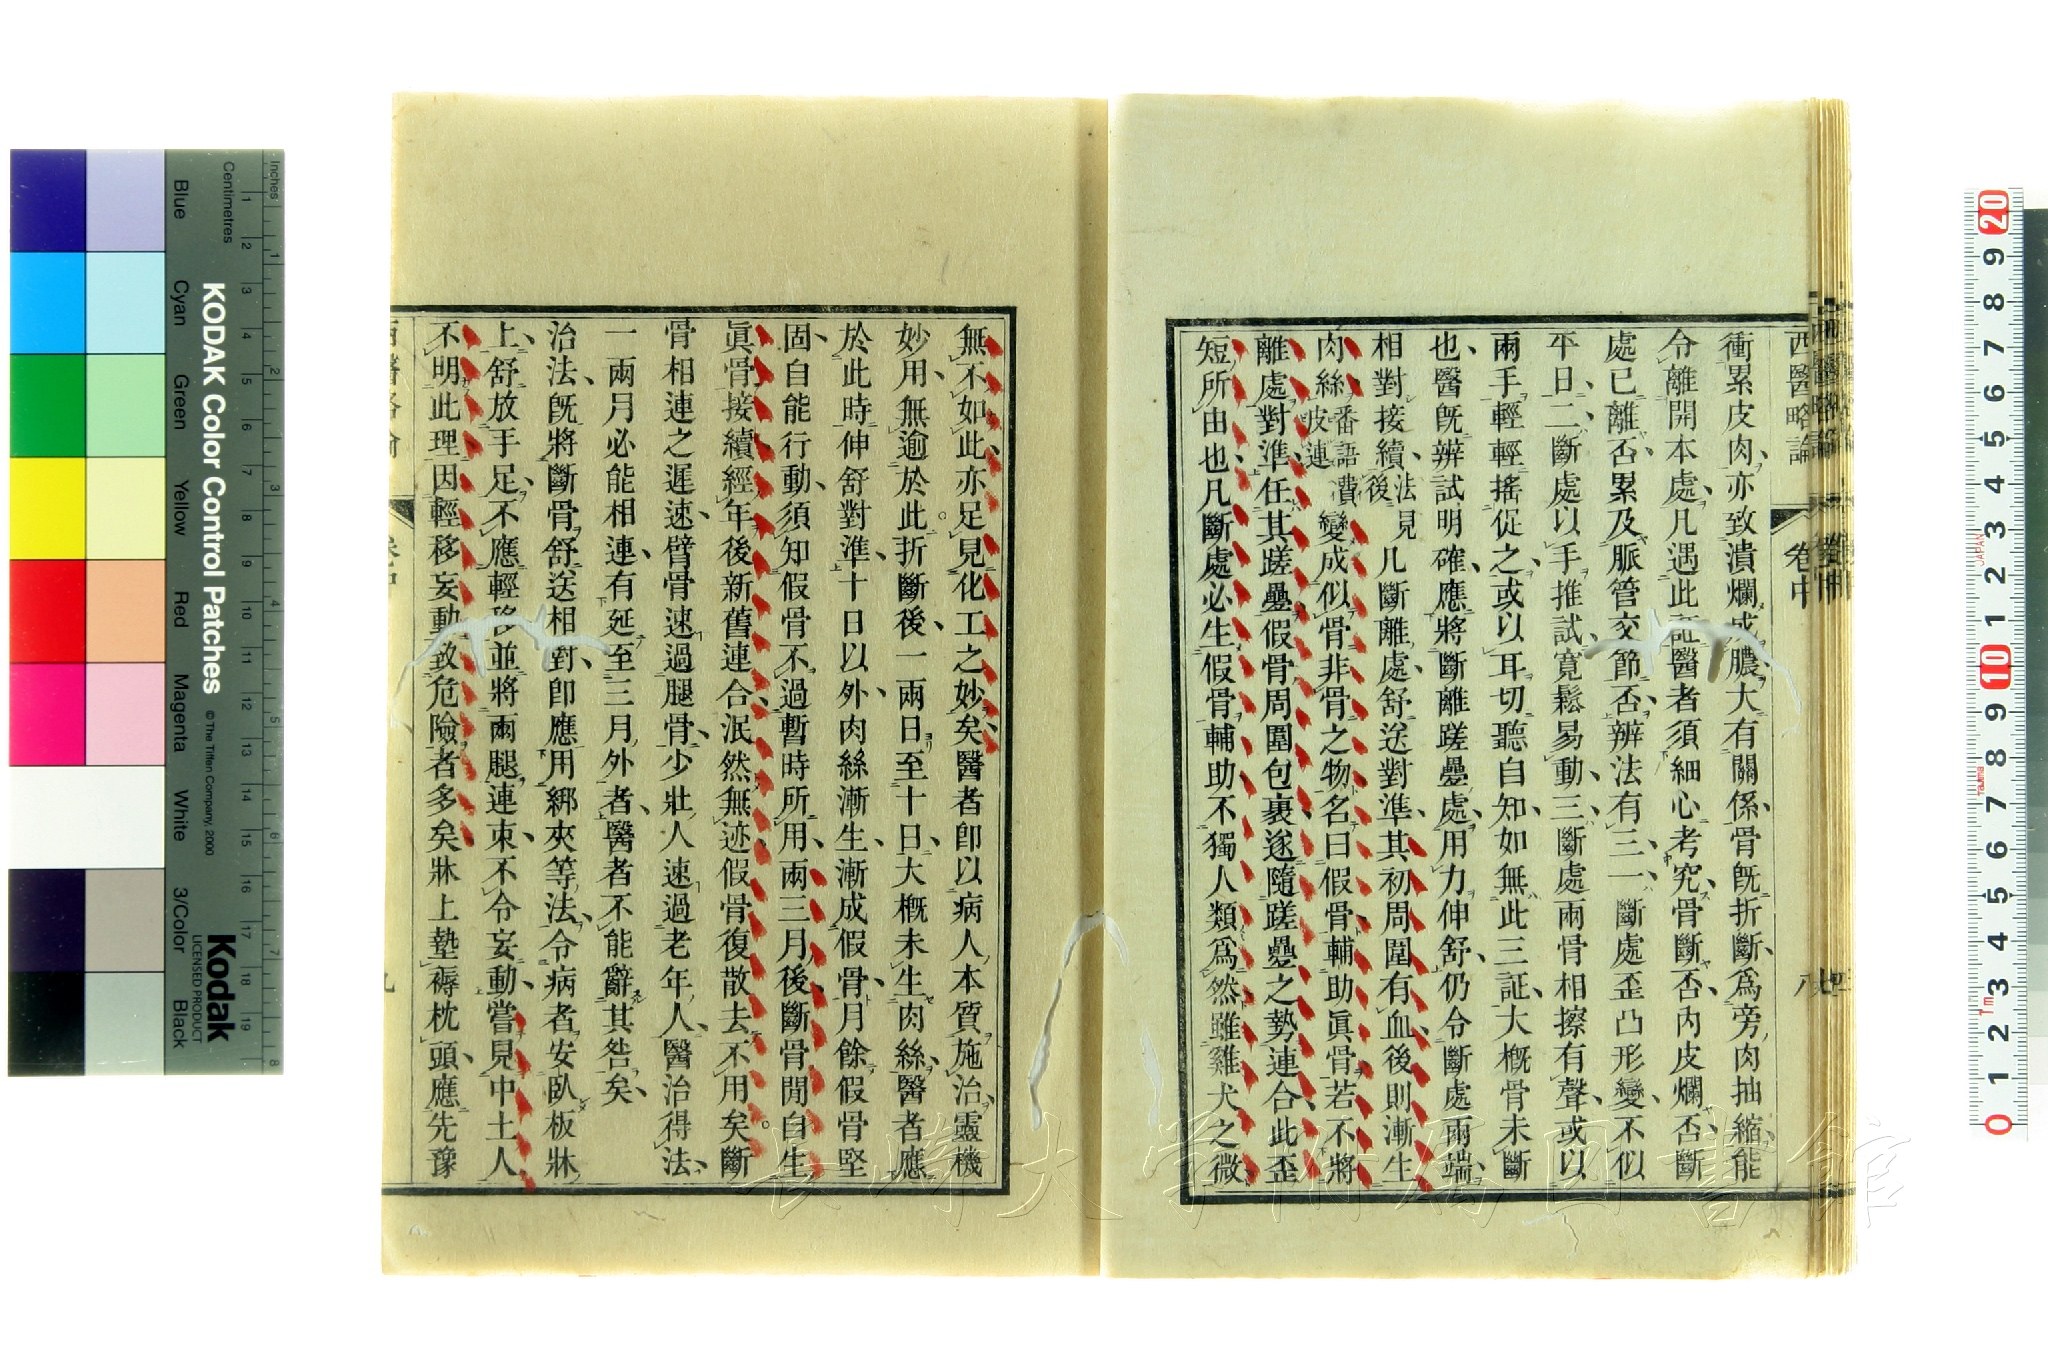 西醫略論 卷中 八
衝累皮肉亦致潰爛成膿大有關係骨旣折斷爲旁肉抽縮能
令離開本處凡遇此証醫者須細心考究骨斷否內皮爛否斷
處已離否累及脈管交節否辨法有三一斷處歪凸形變不似
平日二斷處以手推試寬鬆易動三斷處兩骨相擦有聲或以
兩手輕輕搖從之或以耳切聽自知如無此三証大槪骨未斷
也醫旣辨試明確應將斷離蹉疊處用力伸舒仍令斷處兩端
相對接續法見後凡斷離處舒送對準其初周圍有血後則漸生
肉絲番語謂㳊連變成似骨非骨之物名曰假骨輔助眞骨若不將
離處對準任其蹉疊假骨周圍包裹遂隨蹉疊之勢連合此歪
短所由也凡斷處必生假骨輔助不獨人類爲然雖雞犬之微
無不如此亦足見化工之妙矣醫者卽以病人本質施治靈機
妙用無逾於此折斷後一兩日至十日大槪未生肉絲醫者應
於此時伸舒對準十日以外肉絲漸生漸成假骨月餘假骨堅
固自能行動須知假骨不過暫時所用兩三月後斷骨閒自生
眞骨接續經年後新舊連合泯然無迹假骨復散去不用矣斷
骨相連之遲速臂骨速過腿骨少壯人速過老年人醫治得法
一兩月必能相連有延至三月外者醫者不能辭其咎矣
治法旣將斷骨舒送相對卽應用綁夾等法令病者安臥板牀
上舒放手足不應輕移並將兩腿連束不令妄動嘗見中土人
不明此理因輕移妄動致危險者多矣牀上墊褥枕頭應先豫
西醫略論 卷中 九
長崎大学附属図書館
Inches
Centimetres
KODAK Color Control Patches
© The Tiffen Company, 2000
Kodak
LICENSED PRODUCT
Blue Cyan Green Yellow Red Magenta White 3/Color Black